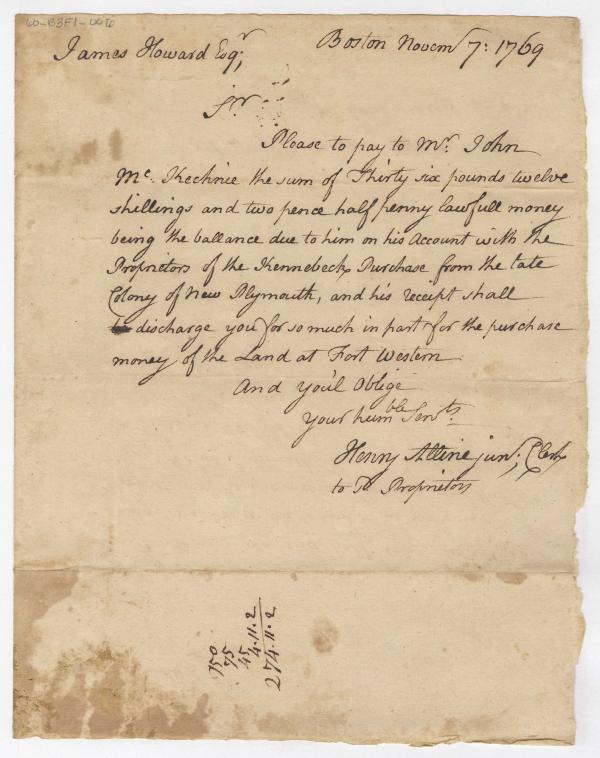 60-B3F1-0016
James Howard Esqr;
Boston Novemr 7: 1769
Sr
Please to pay to Mr. John
Mc. Kechnie the sum of Thirty six pounds twelve
shillings and two pence half penny lawfull money
being the ballance due to him on his Account with the
Proprietors of the Kennebeck Purchase from the late
Colony of New Plymouth, and his receipt shall
discharge you for so much in part for the purchase
money of the Land at Fort Western
And you'l Oblige
your humble Servts.
Henry Alline junr; Clerk
to The Proprietors
150
75
45
4.11.2
274.11.2